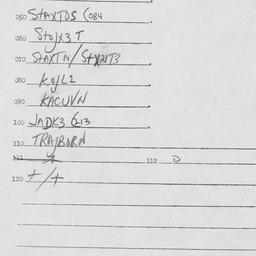 050 STAXTOS (084
060 StojX3 T
070 STAXTN/STXZNT3
080 KOJL2
090 KACUVN
100 JADK3 G13
110 TRAJBORN
111 112 D
120 +/+